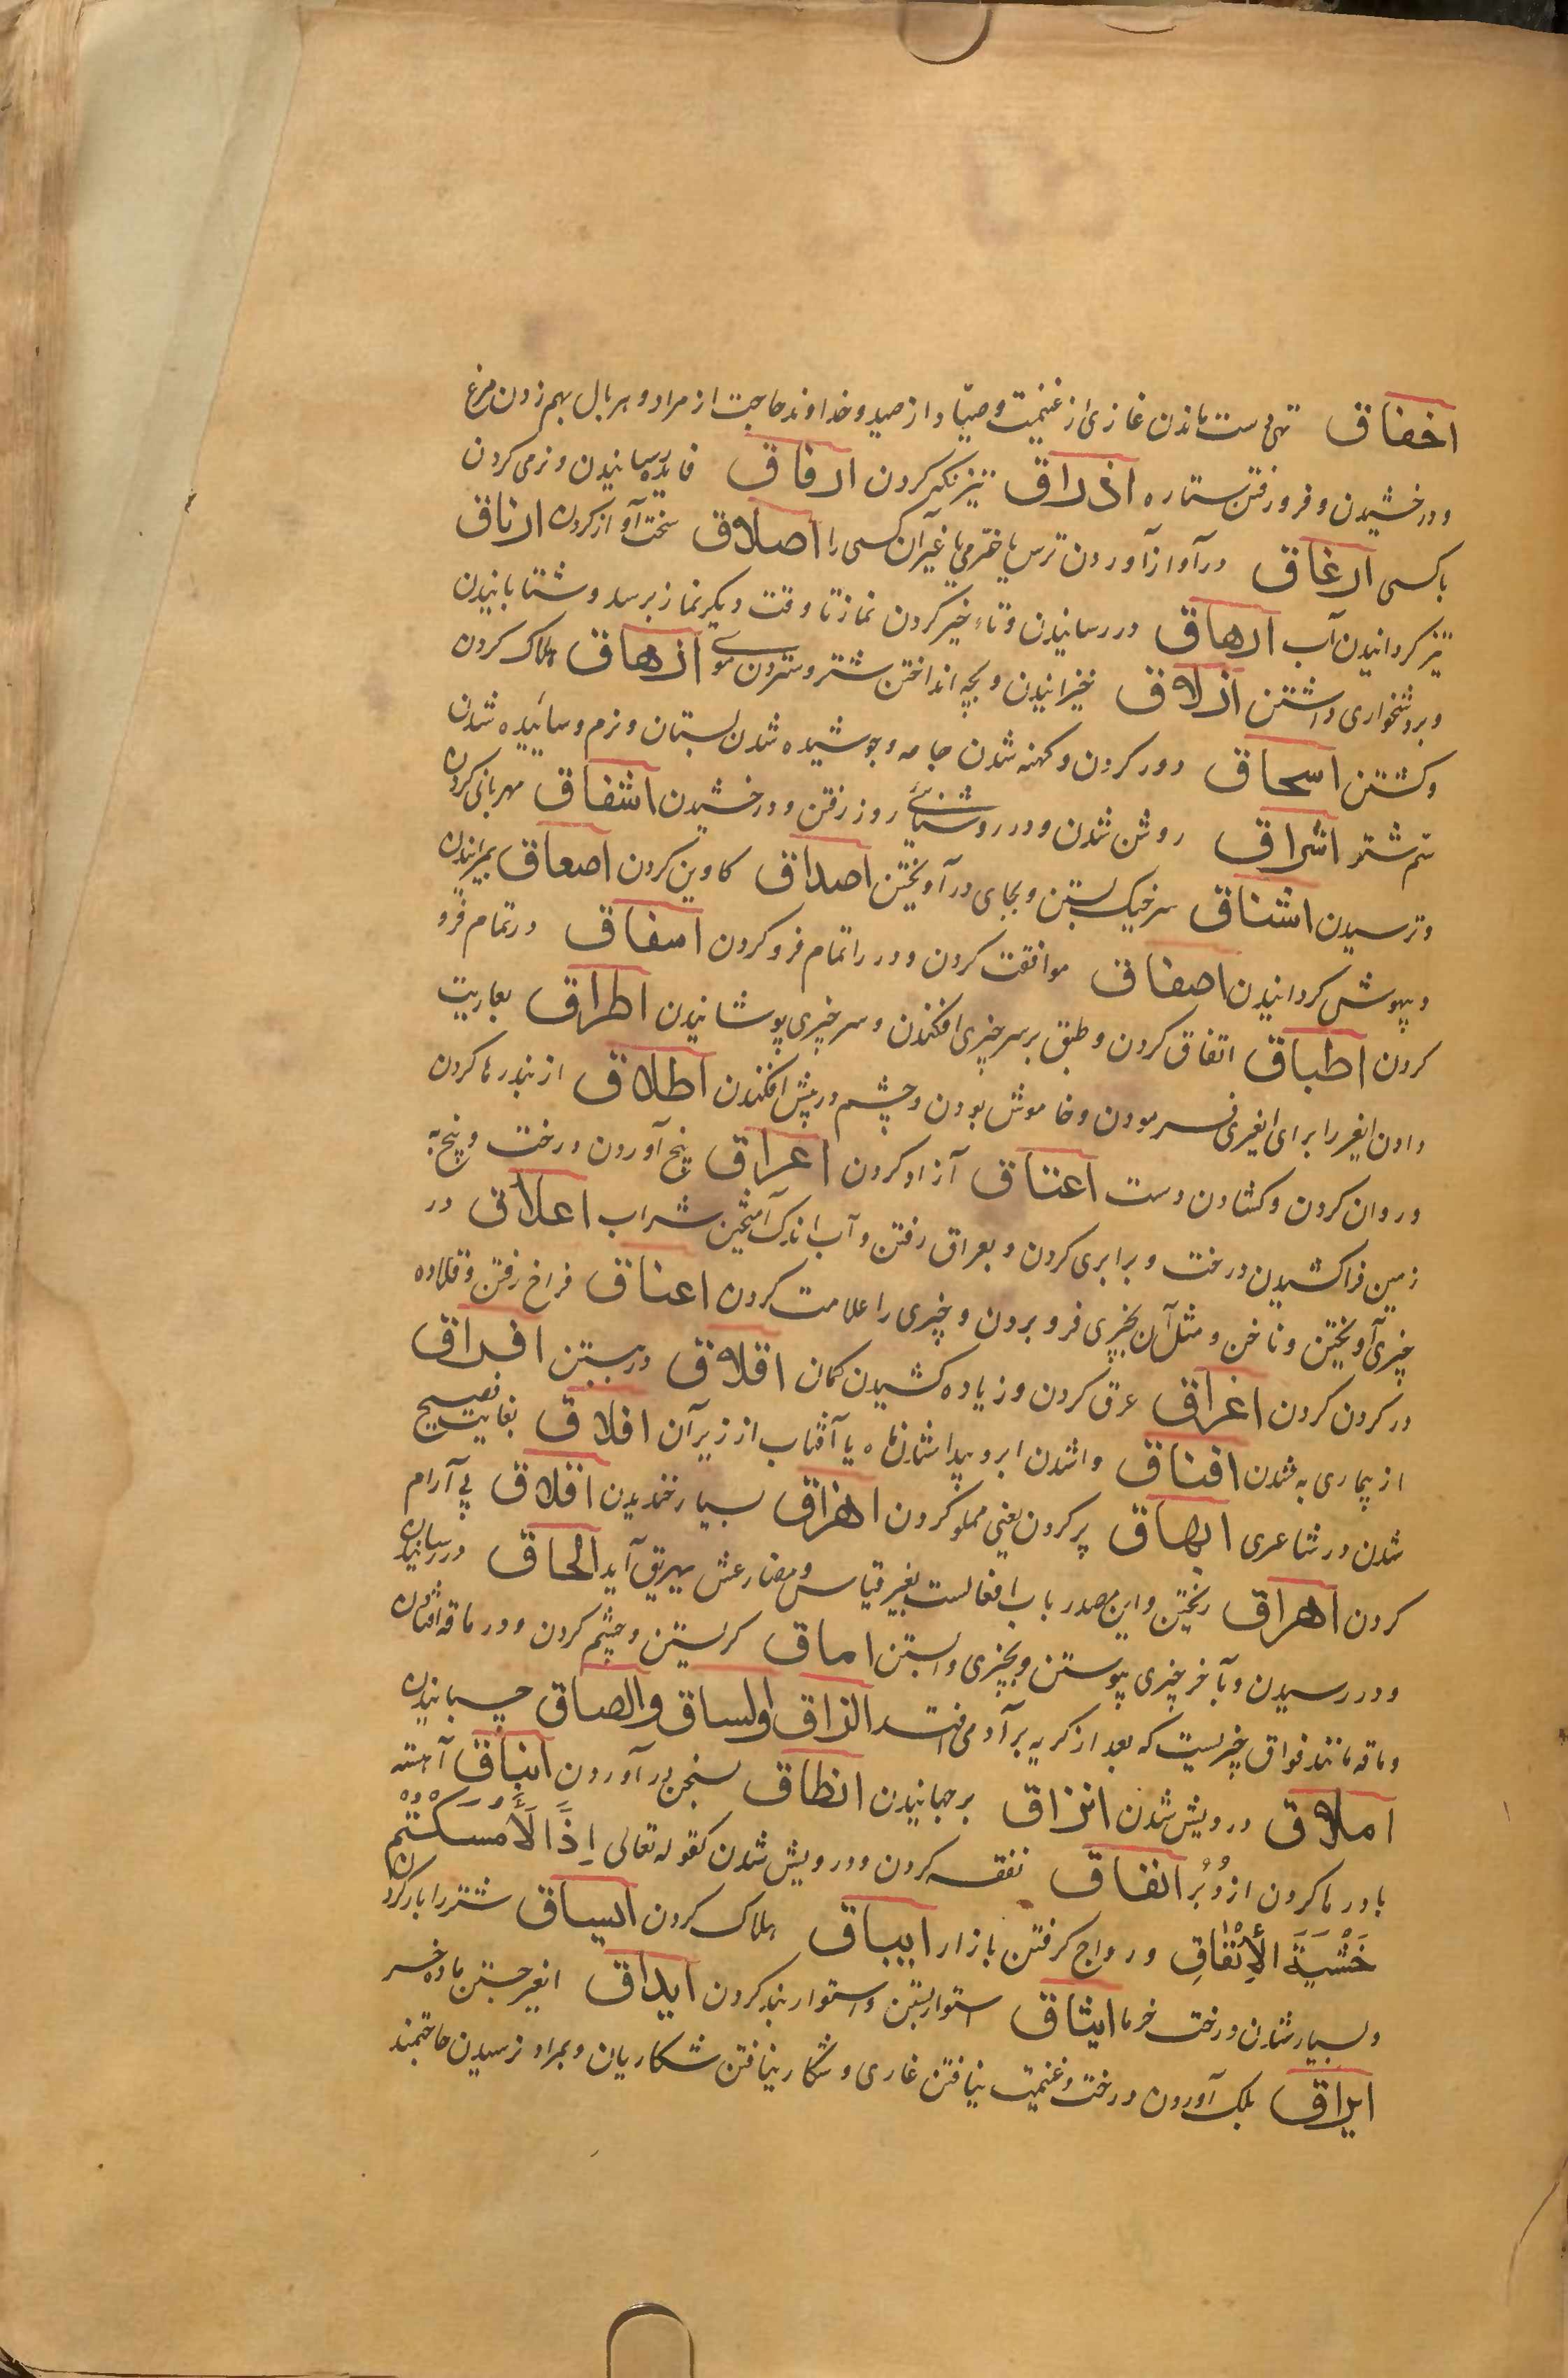 اخفاق تهی دست ماندن غازی از غنیمت و صیّاد از صید و خداوند حاجت از مراد و هر بال بهم زدن مرغ
و درخشیدن و فرو رفتن ستاره اذراق تیز نکیر کردن ارفاق فایده رسانیدن و نرمی کردن
با کسی ارغاق در آواز آوردن ترس یا خرمی یا غیر آن کسی را اصلاق سخت آواز کردن ارناق
تیز کردانیدن آب ارهاق در رسانیدن و تاخیر کردن نماز تا وقت دیکر نماز برسد و شتابانیدن
و بر دشخواری داشتن ازلاق خیزانیدن و بچه انداختن شتر و ستردن موی ازهاق هلاک کردن
و کشتن اسحاق دور کردن و کهنه شدن جامه و جوشیده شدن پستان و نرم و سائیده شدن
سم شتر اشراق روشن شدن و در روشنائی روز رفتن و درخشیدن اشفاق مهربانی کردن
و ترسیدن اشناق سر خیک بستن و بجای در آویختن اصداق کاوین کردن اصعاق بمیرانیدن
و بیهوش کردانیدن اصفاق موافقت کردن و در را تمام فرو کردن اسفاق در تمام فرو
کردن اطباق اتفاق کردن و طبق بر سر چیزی افکندن و سر چیزی پوشانیدن اطراق بعاریت
دادن ایغر را برای ایغری فرمودن و خاموش بودن و چشم در پیش افکندن اطلاق از بند رها کردن
و روان کردن و کشادن دست اعتاق آزاد کردن اعراق بیخ آوردن درخت و بیخ به
زمین فرا کشیدن درخت و برابری کردن و بعراق رفتن و آب اندک آمیختن شراب اعلاق در
چیزی آویختن و ناخن و مثل آن بچیزی فرو بردن و چیزی را علامت کردن اعناق فراخ رفتن و قلاده
در کردن کردن اغراق غرق کردن و زیاده کشیدن کمان اقلاق در بستن افراق
از بیماری به شدن افتاق وا شدن ابر و پیدا شدن ماه یا آفتاب از زیر آن افلاق بغایت فصیح
شدن در شاعری ابهاق پر کردن یعنی مملو کردن اهزاق بسیار خندیدن اقلاق بی آرام
کردن اهراق ریختن و این مصدر باب افعالست بغیر قیاس و مضارعش یهریق آید الحاق در رسانیدن
و در رسیدن و بآخر چیزی پیوستن و بچیزی وابستن اماق کریستن و چشم کردن و در ماقه افتادن
و ماقه مانند فواق چیزیست که بعد از کریه بر آدمی افتد الزاق والساق والصاق چسبانیدن
املاق درویش شدن انزاق برجهانیدن انطاق بسخن در آوردن انباق آهسته
باد رها کردن از دُبُر انفاق نفقه کردن و درویش شدن کقوله تعالی اِذًا لَأَمْسَكْتُمْ
خَشْيَةَ الْإِنْفَاقِ و رواج کرفتن بازار ایباق هلاک کردن ایساق شتر را بار کردن
و بسیار شدن درخت خرما ایثاق استوار بستن و استوار بند کردن ایداق ایغر جستن ماده خر
ایراق ببرک آوردن درخت و غنیمت نیافتن غازی و شکار نیافتن شکاریان و بمراد نرسیدن حاجتمند